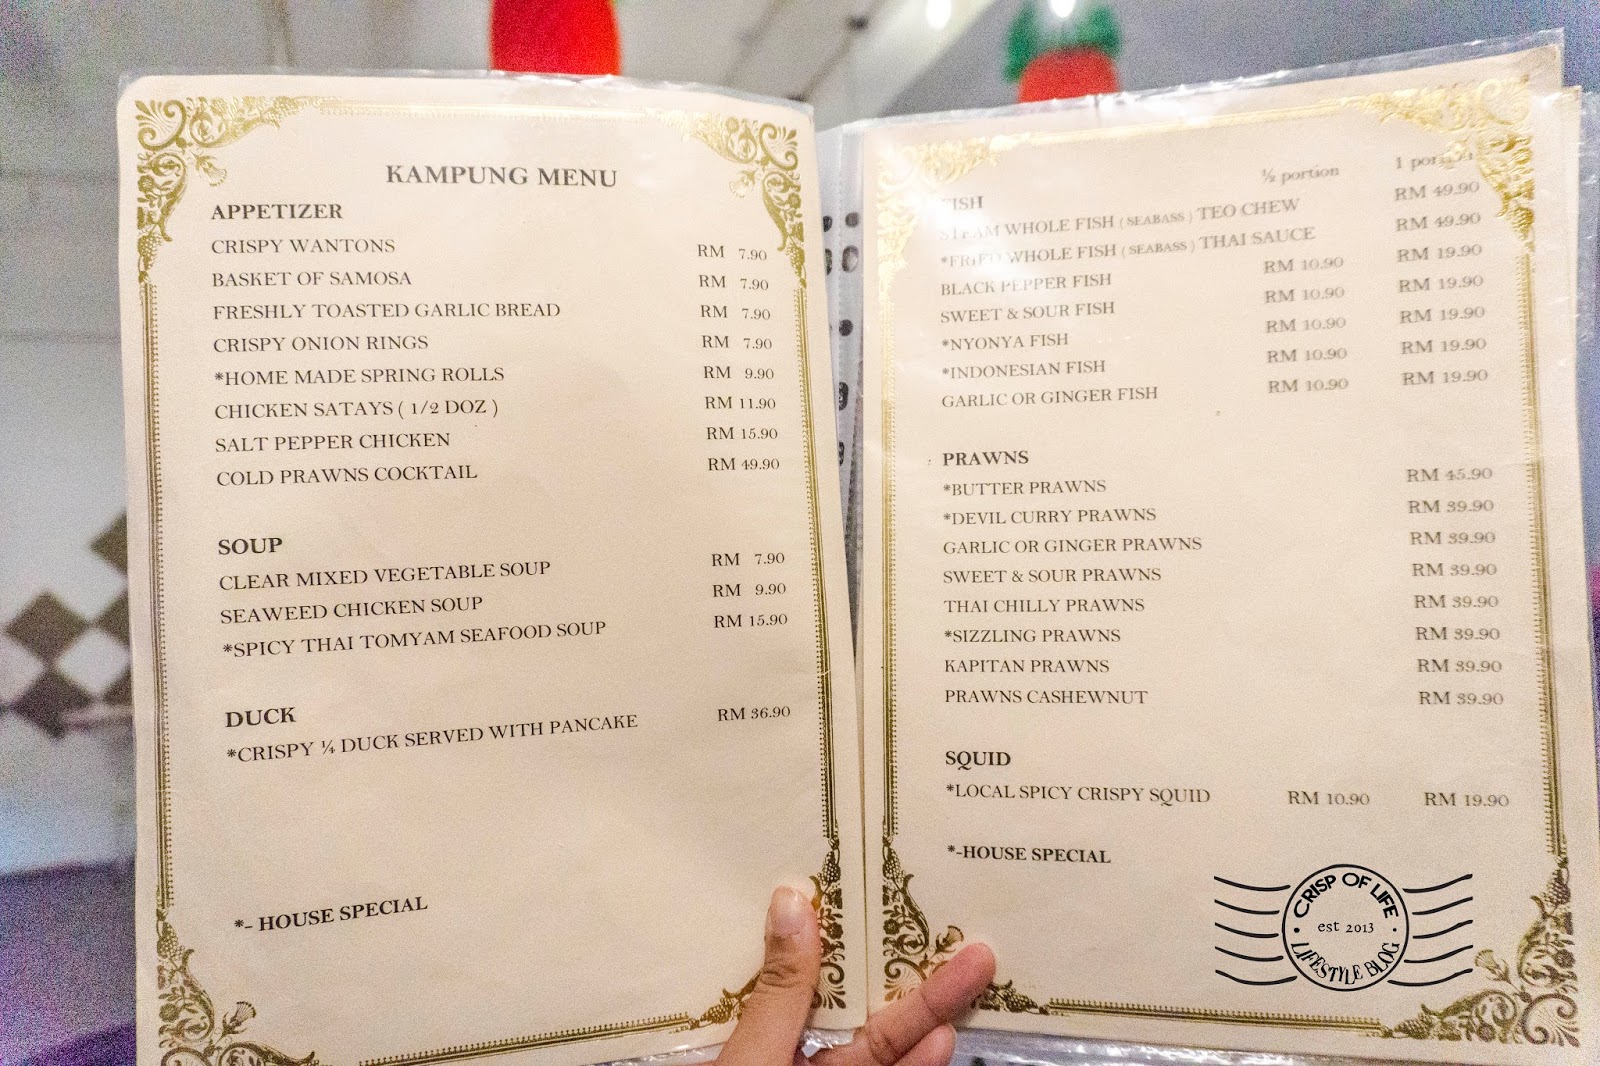 KAMPUNG MENU
APPETIZER
CRISPY WANTONS RM 7.90
BASKET OF SAMOSA RM 7.90
FRESHLY TOASTED GARLIC BREAD RM 7.90
CRISPY ONION RINGS RM 7.90
*HOME MADE SPRING ROLLS RM 9.90
CHICKEN SATAYS ( 1/2 DOZ ) RM 11.90
SALT PEPPER CHICKEN RM 15.90
COLD PRAWNS COCKTAIL RM 49.90
SOUP
CLEAR MIXED VEGETABLE SOUP RM 7.90
SEAWEED CHICKEN SOUP RM 9.90
*SPICY THAI TOMYAM SEAFOOD SOUP RM 15.90
DUCK
*CRISPY ¼ DUCK SERVED WITH PANCAKE RM 36.90
*- HOUSE SPECIAL
½ portion 1 portion
FISH
STEAM WHOLE FISH ( SEABASS ) TEO CHEW RM 49.90
*FRIED WHOLE FISH ( SEABASS ) THAI SAUCE RM 49.90
BLACK PEPPER FISH RM 10.90 RM 19.90
SWEET & SOUR FISH RM 10.90 RM 19.90
*NYONYA FISH RM 10.90 RM 19.90
*INDONESIAN FISH RM 10.90 RM 19.90
GARLIC OR GINGER FISH RM 10.90 RM 19.90
PRAWNS
*BUTTER PRAWNS RM 45.90
*DEVIL CURRY PRAWNS RM 39.90
GARLIC OR GINGER PRAWNS RM 39.90
SWEET & SOUR PRAWNS RM 39.90
THAI CHILLY PRAWNS RM 39.90
*SIZZLING PRAWNS RM 39.90
KAPITAN PRAWNS RM 39.90
PRAWNS CASHEWNUT RM 39.90
SQUID
*LOCAL SPICY CRISPY SQUID RM 10.90 RM 19.90
*-HOUSE SPECIAL
CRISP OF LIFE
est 2013
LIFESTYLE BLOG